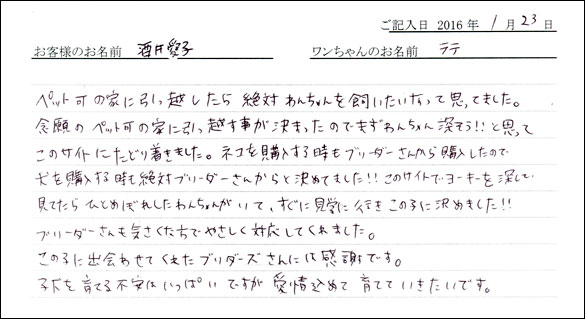 ご記入日 2016 年 1 月 23 日
お客様のお名前 酒井愛子 ワンちゃんのお名前 テテ
ペット可の家に引っ越したら 絶対 わんちゃんを飼いたいなって思ってました。
念願の ペット可の家に引っ越す事が 決まったのでまずわんちゃん 探そう!! と思って
このサイトにたどり着きました。ネコを購入する時も ブリーダーさんから 購入したので
犬を購入する時も絶対ブリーダーさんからと 決めてました!! このサイトでヨーキーを 探して
見てたら ひとめぼれしたわんちゃんがいて、すぐに見学に 行き この子に 決めました!!
ブリーダーさんも 気さくな方で やさしく 対応してくれました。
この子に 出会わせて くれた ブリーダーズ さんには 感謝です。
子犬を 育てる 不安は いっぱい ですが 愛情込めて 育てて いきたいです。